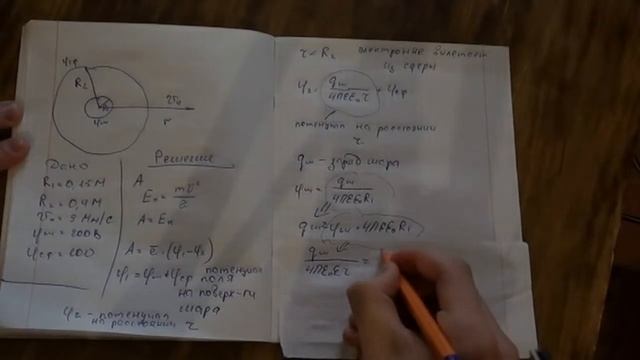 φсф
R₂
φш
υ₀
r
Дано
R₁ = 0,15 м
υ₀ = 9 Мм/с
φш = 200В
φсф = 600
Решение
A
Eк = mυ²/2
A = Eк
A = ē·(φ₁-φ₂)
φ₁ = φш + φсф потенциал
поля
на поверх-ти
шара
φ₂ - потенциал
на расстоянии r
r < R₂ электрон не вылетает
из сферы
φ₂ = qш/4πεε₀r + φсф
потенциал на расстоянии
r
qш - заряд шара
φш = qш/4πεε₀R₁
qш = φш·4πεε₀R₁
qш/4πε₀εr =